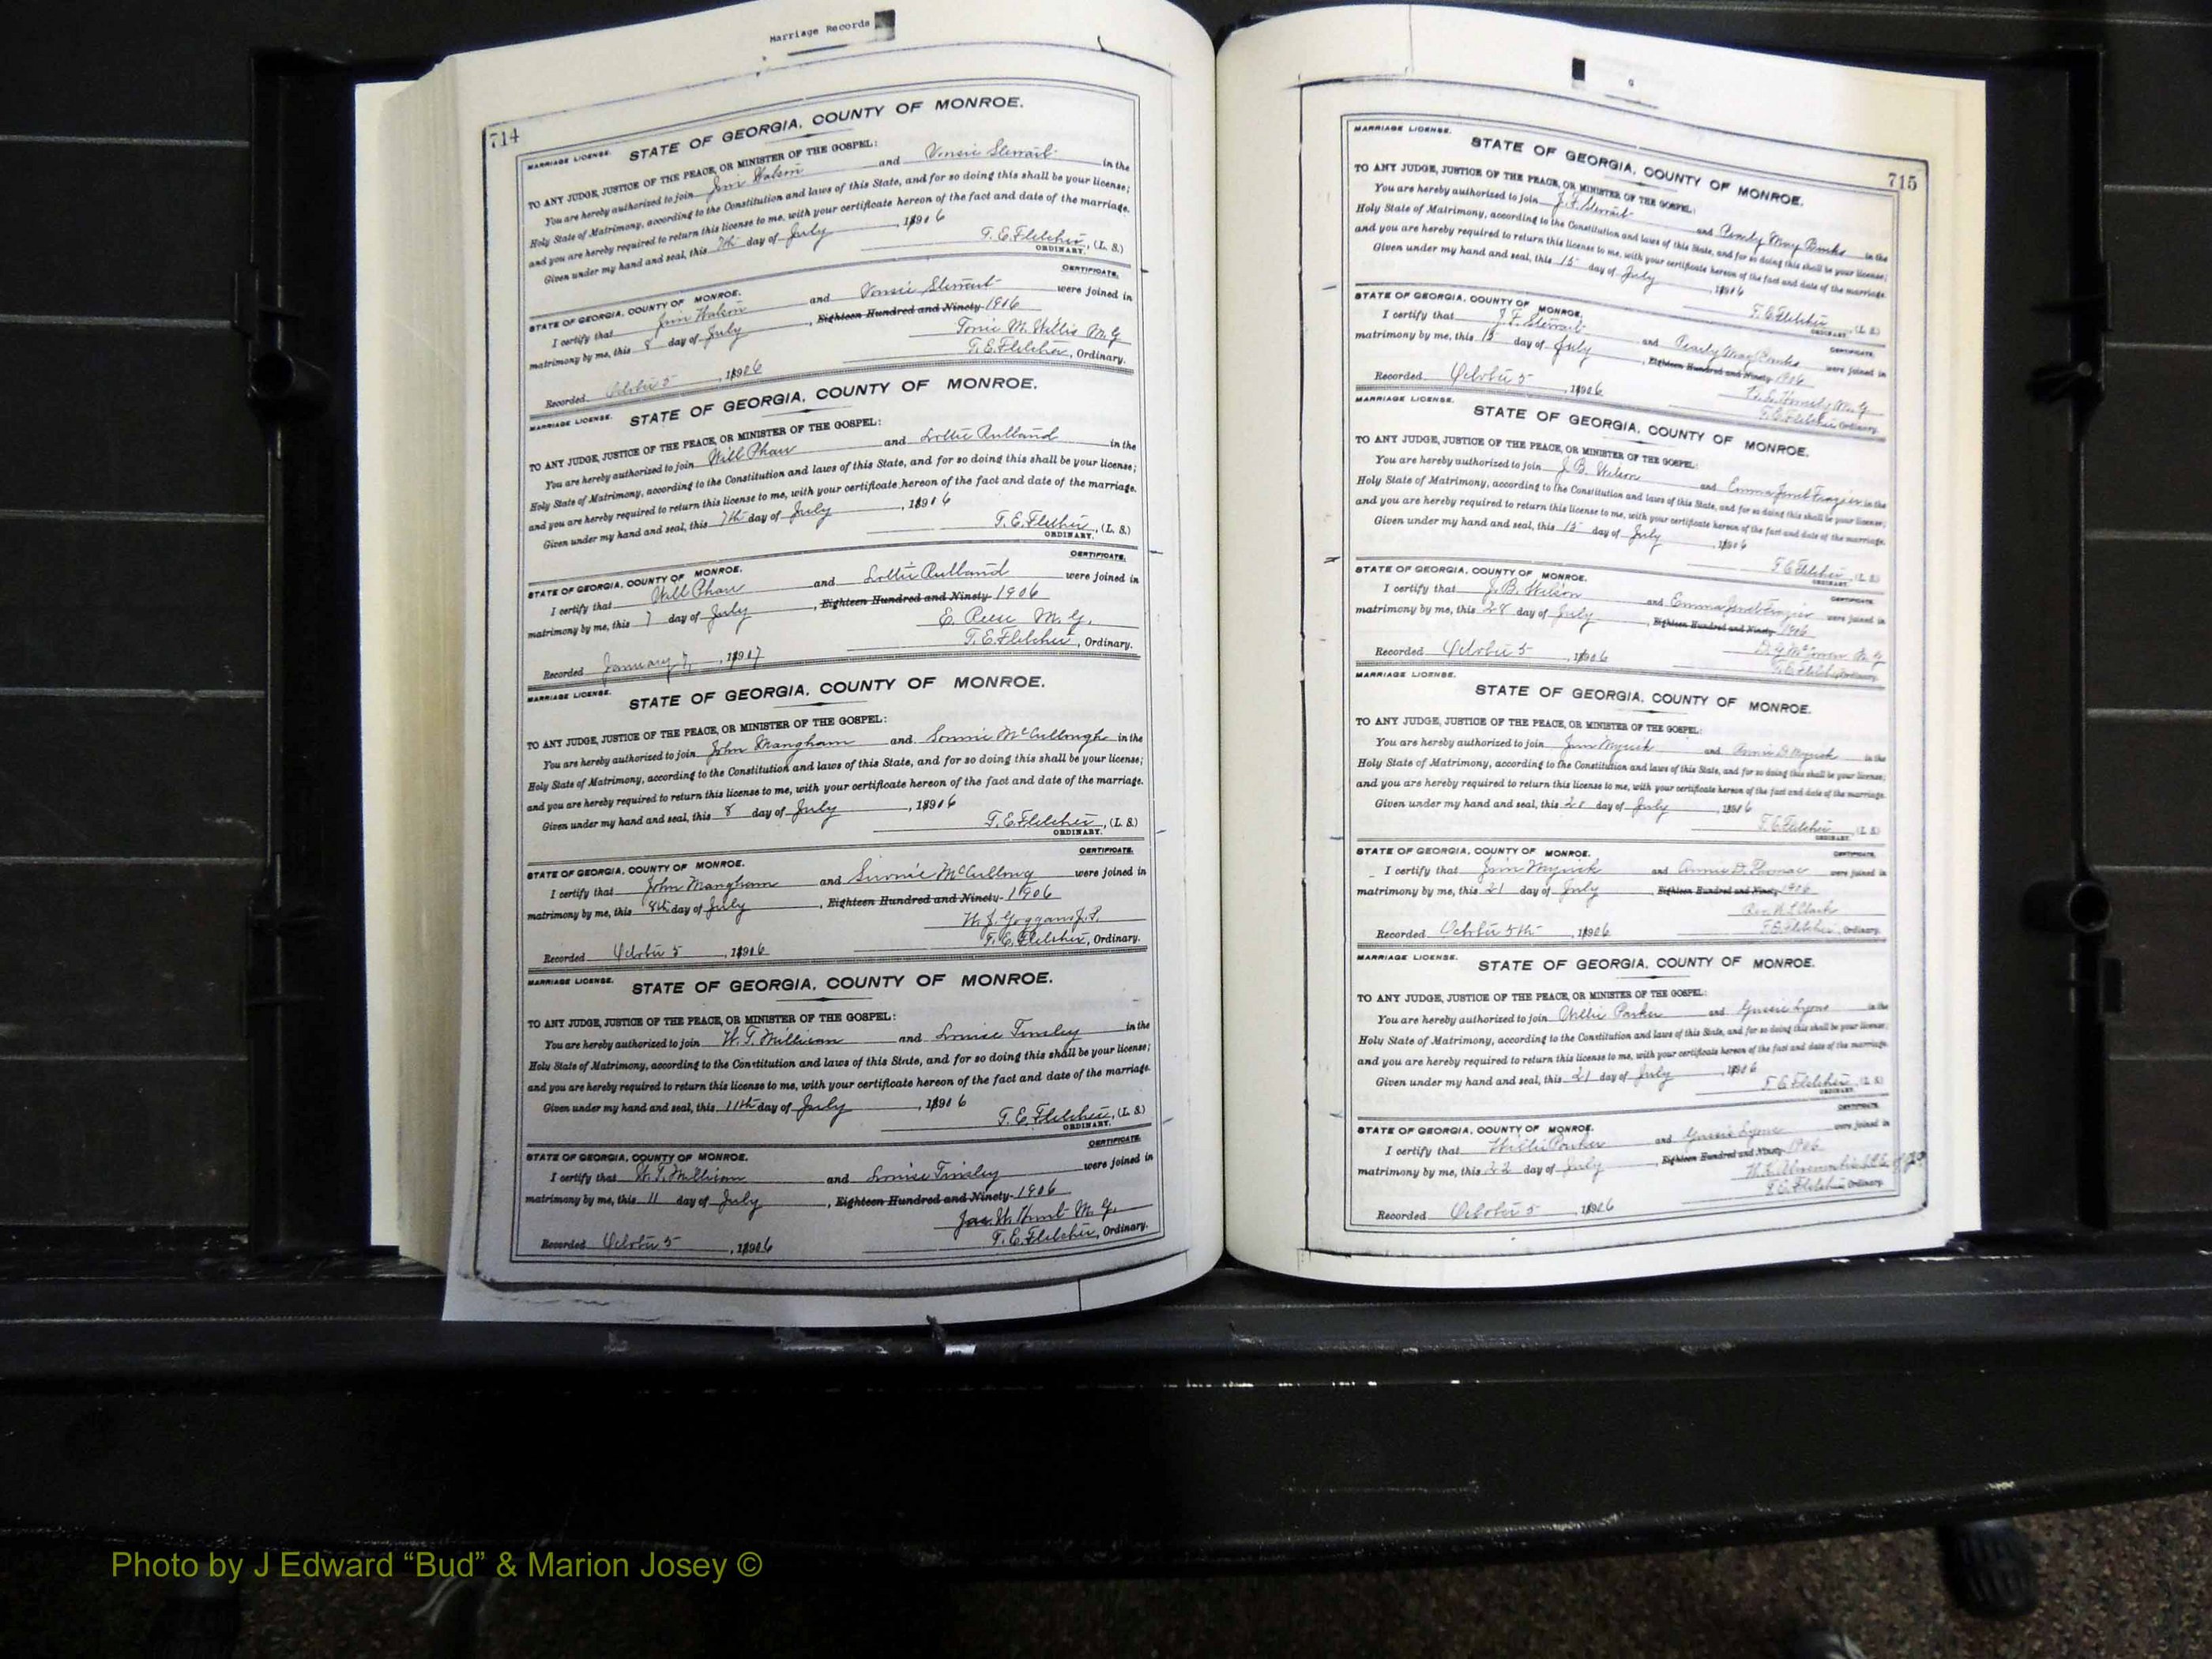 Marriage Records
714
MARRIAGE LICENSE. STATE OF GEORGIA, COUNTY OF MONROE.
TO ANY JUDGE, JUSTICE OF THE PEACE, OR MINISTER OF THE GOSPEL:
You are hereby authorized to join Jim Watson and Vonsie Stewart in the
Holy State of Matrimony, according to the Constitution and laws of this State, and for so doing this shall be your license;
and you are hereby required to return this license to me, with your certificate hereon of the fact and date of the marriage.
Given under my hand and seal, this 7th day of July, 1906
T. E. Fletcher, (L. S.)
ORDINARY.
CERTIFICATE.
STATE OF GEORGIA, COUNTY OF MONROE.
I certify that Jim Watson and Vonsie Stewart were joined in
matrimony by me, this 8 day of July, Eighteen Hundred and Ninety 1906
Willis M. G.
Recorded October 5, 1906 T. E. Fletcher, Ordinary.
MARRIAGE LICENSE. STATE OF GEORGIA, COUNTY OF MONROE.
TO ANY JUDGE, JUSTICE OF THE PEACE, OR MINISTER OF THE GOSPEL:
You are hereby authorized to join Will Phaw and Lottie Rutland in the
Holy State of Matrimony, according to the Constitution and laws of this State, and for so doing this shall be your license;
and you are hereby required to return this license to me, with your certificate hereon of the fact and date of the marriage.
Given under my hand and seal, this 7th day of July, 1906
T. E. Fletcher, (L. S.)
ORDINARY.
CERTIFICATE.
STATE OF GEORGIA, COUNTY OF MONROE.
I certify that Will Phaw and Lottie Rutland were joined in
matrimony by me, this 7 day of July, Eighteen Hundred and Ninety 1906
E. Reese M. G.
Recorded January 7, 1907 T. E. Fletcher, Ordinary.
MARRIAGE LICENSE. STATE OF GEORGIA, COUNTY OF MONROE.
TO ANY JUDGE, JUSTICE OF THE PEACE, OR MINISTER OF THE GOSPEL:
You are hereby authorized to join John Mangham and McCullough in the
Holy State of Matrimony, according to the Constitution and laws of this State, and for so doing this shall be your license;
and you are hereby required to return this license to me, with your certificate hereon of the fact and date of the marriage.
Given under my hand and seal, this 8 day of July, 1906
T. E. Fletcher, (L. S.)
ORDINARY.
CERTIFICATE.
STATE OF GEORGIA, COUNTY OF MONROE.
I certify that John Mangham and were joined in
matrimony by me, this 8th day of July, Eighteen Hundred and Ninety 1906
Goggans J. P.
Recorded October 5, 1906 T. E. Fletcher, Ordinary.
MARRIAGE LICENSE. STATE OF GEORGIA, COUNTY OF MONROE.
TO ANY JUDGE, JUSTICE OF THE PEACE, OR MINISTER OF THE GOSPEL:
You are hereby authorized to join W. T. Millican and Louise Tinsley in the
Holy State of Matrimony, according to the Constitution and laws of this State, and for so doing this shall be your license;
and you are hereby required to return this license to me, with your certificate hereon of the fact and date of the marriage.
Given under my hand and seal, this 11th day of July, 1906
T. E. Fletcher, (L. S.)
ORDINARY.
CERTIFICATE.
STATE OF GEORGIA, COUNTY OF MONROE.
I certify that W. T. Millican and Louise Tinsley were joined in
matrimony by me, this 11 day of July, Eighteen Hundred and Ninety 1906
Jas. W. Hunt M. G.
Recorded October 5, 1906 T. E. Fletcher, Ordinary.
715
MARRIAGE LICENSE.
STATE OF GEORGIA, COUNTY OF MONROE.
TO ANY JUDGE, JUSTICE OF THE PEACE, OR MINISTER OF THE GOSPEL:
You are hereby authorized to join J. F. Stewart and Pearly May Banks in the
Holy State of Matrimony, according to the Constitution and laws of this State, and for so doing this shall be your license;
and you are hereby required to return this license to me, with your certificate hereon of the fact and date of the marriage.
Given under my hand and seal, this 15 day of July, 1906
T. E. Fletcher, (L. S.)
ORDINARY.
CERTIFICATE.
STATE OF GEORGIA, COUNTY OF MONROE.
I certify that J. F. Stewart and Pearly May Banks were joined in
matrimony by me, this 15 day of July, Eighteen Hundred and Ninety 1906
M. G.
Recorded October 5, 1906 T. E. Fletcher, Ordinary.
MARRIAGE LICENSE.
STATE OF GEORGIA, COUNTY OF MONROE.
TO ANY JUDGE, JUSTICE OF THE PEACE, OR MINISTER OF THE GOSPEL:
You are hereby authorized to join J. B. Wilson and Emma Frazier in the
Holy State of Matrimony, according to the Constitution and laws of this State, and for so doing this shall be your license;
and you are hereby required to return this license to me, with your certificate hereon of the fact and date of the marriage.
Given under my hand and seal, this 15 day of July, 1906
T. E. Fletcher, (L. S.)
ORDINARY.
CERTIFICATE.
STATE OF GEORGIA, COUNTY OF MONROE.
I certify that J. B. Wilson and Emma Frazier were joined in
matrimony by me, this 28 day of July, Eighteen Hundred and Ninety 1906
M. G.
Recorded October 5, 1906 T. E. Fletcher, Ordinary.
MARRIAGE LICENSE.
STATE OF GEORGIA, COUNTY OF MONROE.
TO ANY JUDGE, JUSTICE OF THE PEACE, OR MINISTER OF THE GOSPEL:
You are hereby authorized to join Jim Myrick and Annie D. Myrick in the
Holy State of Matrimony, according to the Constitution and laws of this State, and for so doing this shall be your license;
and you are hereby required to return this license to me, with your certificate hereon of the fact and date of the marriage.
Given under my hand and seal, this 21 day of July, 1906
T. E. Fletcher, (L. S.)
ORDINARY.
CERTIFICATE.
STATE OF GEORGIA, COUNTY OF MONROE.
I certify that Jim Myrick and Annie D. Thomas were joined in
matrimony by me, this 21 day of July, Eighteen Hundred and Ninety 1906
Rev. Clark
Recorded October 5th, 1906 T. E. Fletcher, Ordinary.
MARRIAGE LICENSE.
STATE OF GEORGIA, COUNTY OF MONROE.
TO ANY JUDGE, JUSTICE OF THE PEACE, OR MINISTER OF THE GOSPEL:
You are hereby authorized to join Willie Parker and Gussie Lyons in the
Holy State of Matrimony, according to the Constitution and laws of this State, and for so doing this shall be your license;
and you are hereby required to return this license to me, with your certificate hereon of the fact and date of the marriage.
Given under my hand and seal, this 21 day of July, 1906
T. E. Fletcher, (L. S.)
ORDINARY.
CERTIFICATE.
STATE OF GEORGIA, COUNTY OF MONROE.
I certify that Willie Parker and Gussie Lyons were joined in
matrimony by me, this 22 day of July, Eighteen Hundred and Ninety 1906
Recorded October 5, 1906 T. E. Fletcher, Ordinary.
Photo by J Edward “Bud” & Marion Josey ©